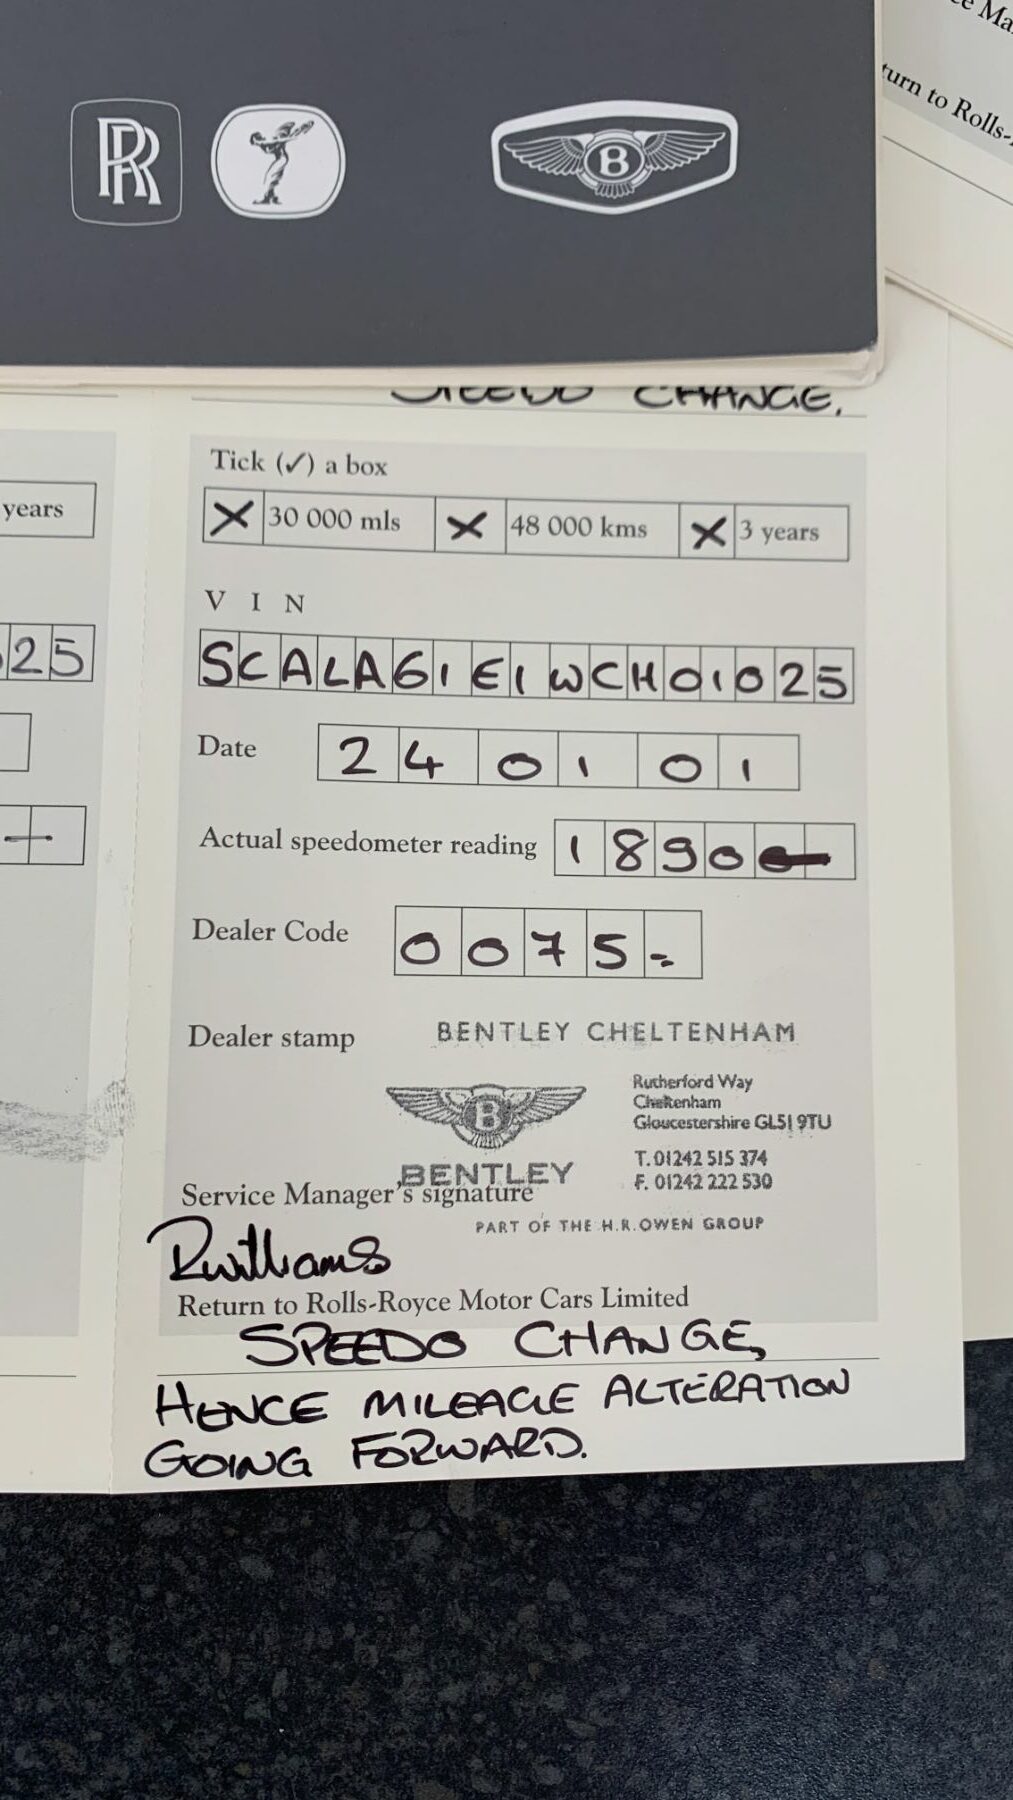 ce Ma
turn to Rolls-
RR
B
SPEEDO CHANGE,
Tick (✓) a box
years
X 30 000 mls X 48 000 kms X 3 years
V I N
25
SCALA61E1WCH01025
Date 24 01 01
Actual speedometer reading 1890
Dealer Code 0075-
Dealer stamp
BENTLEY CHELTENHAM
B
BENTLEY
Rutherford Way
Cheltenham
Gloucestershire GL51 9TU
T. 01242 515 374
F. 01242 222 530
PART OF THE H.R.OWEN GROUP
Service Manager's signature
RWilliams
Return to Rolls-Royce Motor Cars Limited
SPEEDO CHANGE,
HENCE MILEAGE ALTERATION
GOING FORWARD.